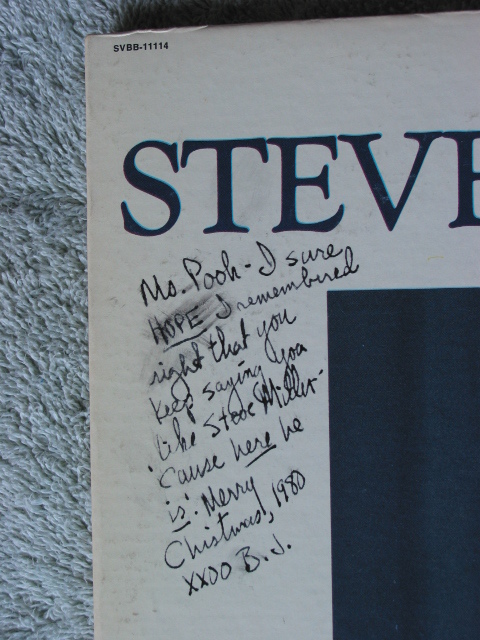 SVBB-11114
STEVE
Ms. Pooh - I sure
HOPE I remembered
right that you
keep saying you
like Steve Miller -
'Cause here he
is! Merry
Christmas, 1980
XXOO B.J.